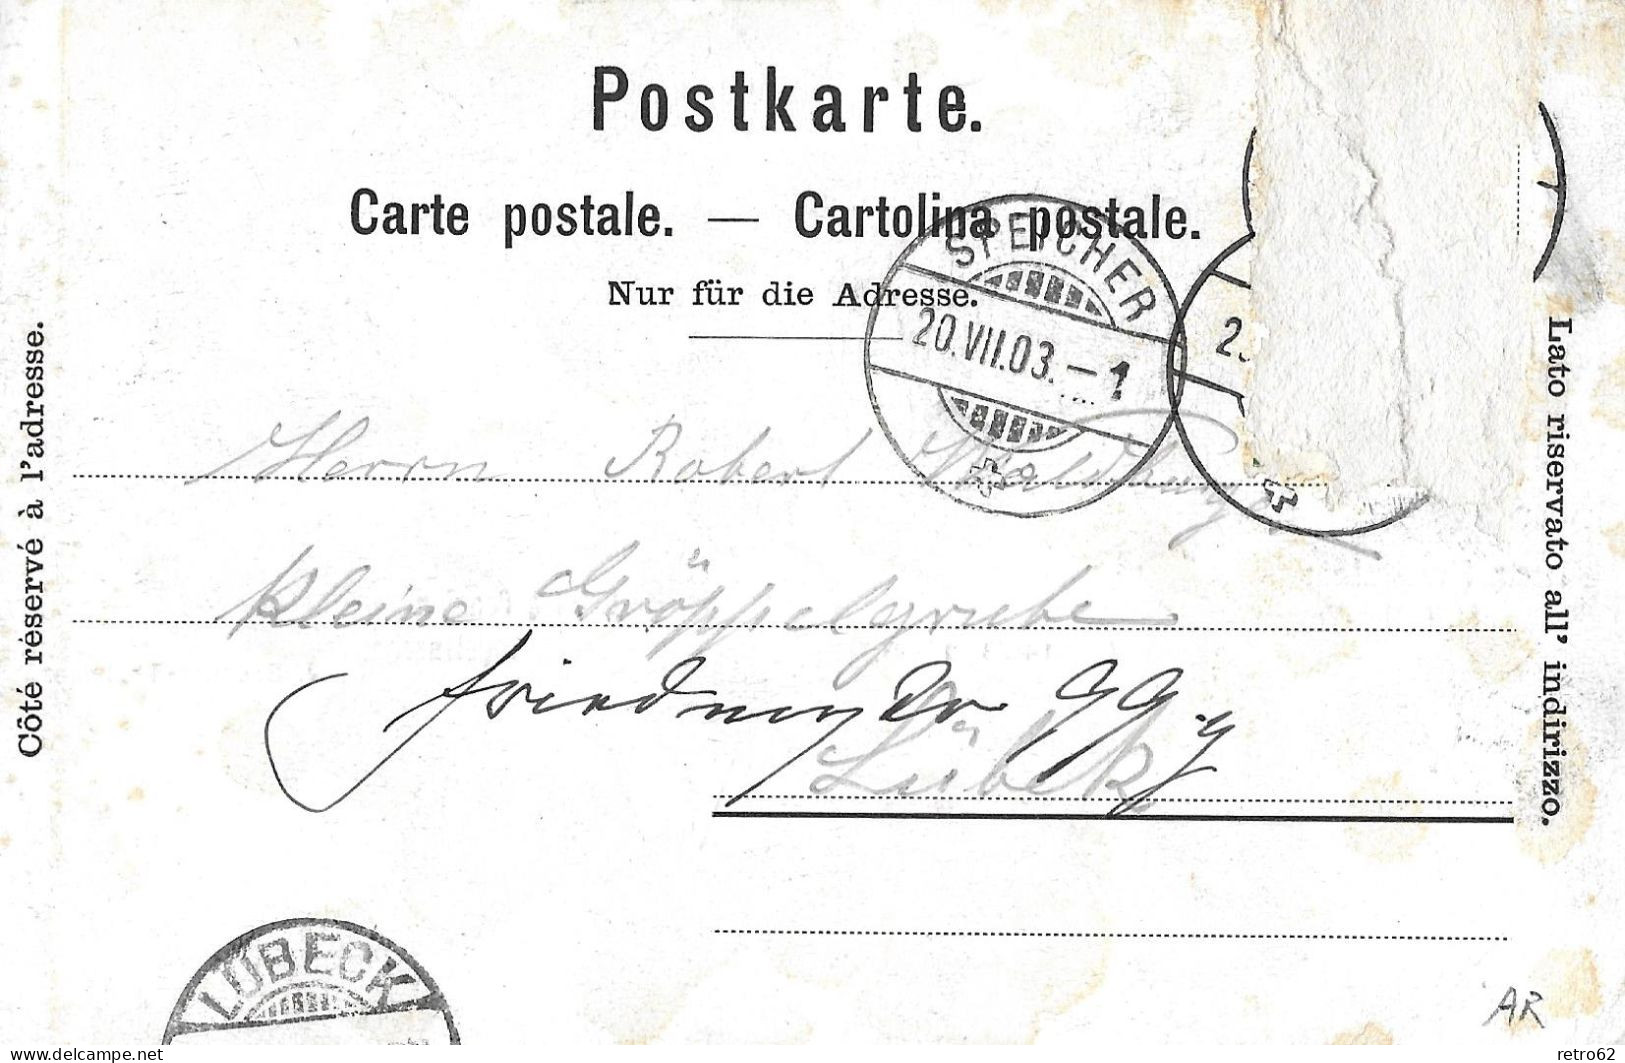 Postkarte.
Carte postale. — Cartolina postale.
Nur für die Adresse.
SPEICHER
20.VII.03.–1
2
Côté réservé à l'adresse.
Lato riservato all' indirizzo.
Herrn Robert
Kleine Gröppelgrube
Lübeck
LÜBECK
AR
delcampe.net
retro62